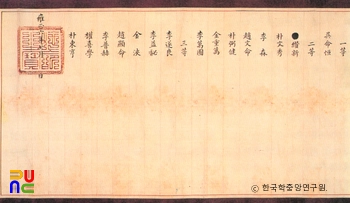 一等
吳命恒
二等
●纘新
朴文秀
李森
趙文命
朴弼健
金重萬
李萬囿
三等
李遂良
李益馝
金浹
趙顯命
李普赫
權喜學
朴東亨
雍 日
UNC
© 한국학중앙연구원